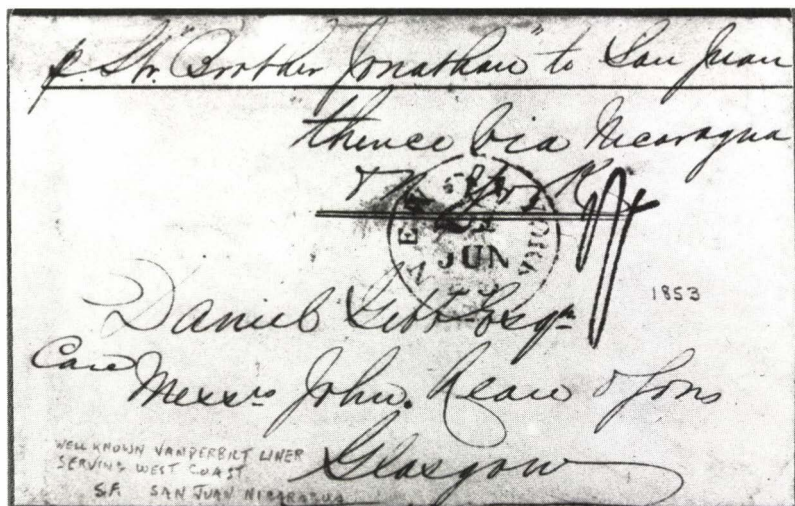 p. Str. "Brother Jonathan" to San Juan
thence via Nicaragua
& N. York
NEW YORK
JUN
1853
Daniel Gibb Esqr
Care Messrs John. & Sons
Glasgow
WELL KNOWN VANDERBILT LINER
SERVING WEST COAST
S.F. SAN JUAN NICARAGUA